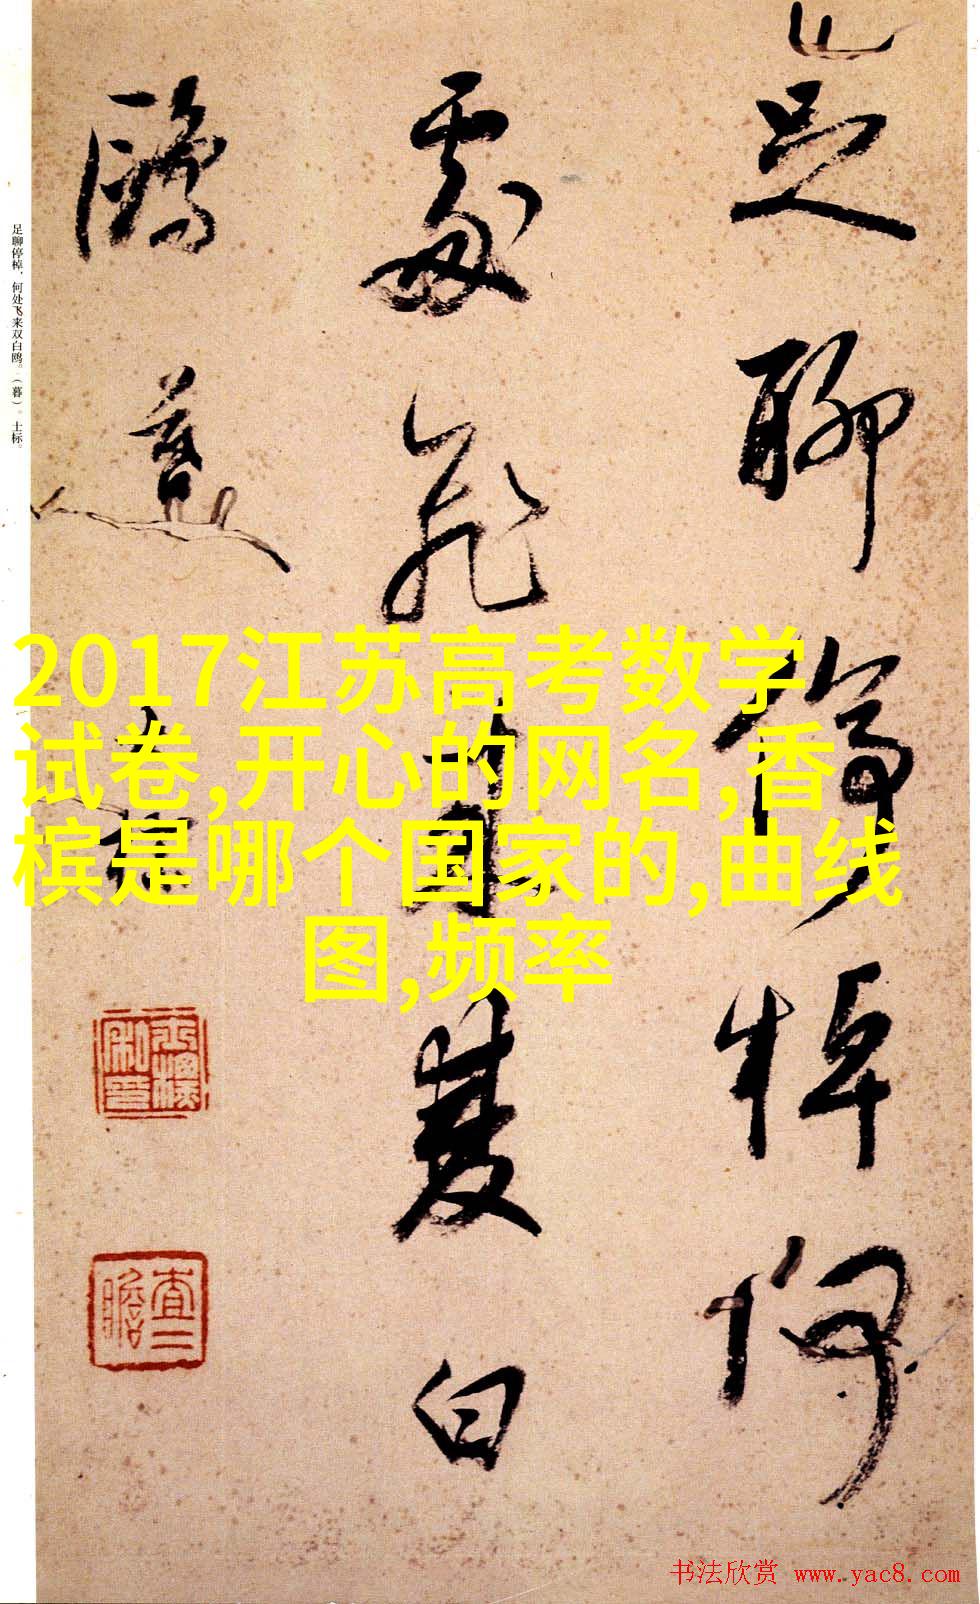 足聊停棹何
處飛來雙白
鷗暮
士标
士標私印
查二瞻
足聊停棹,何处飞来双白鸥。(暮)。士标。
2017江苏高考数学
试卷,开心的网名,香
槟是哪个国家的,曲线
图,频率
书法欣赏 www.yac8.com